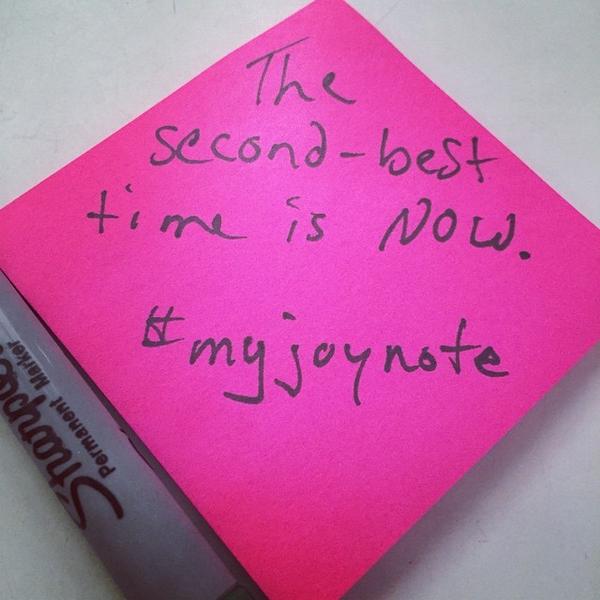 The
second-best
time is NOW.
#myjoynote
Sharpie
Permanent Marker